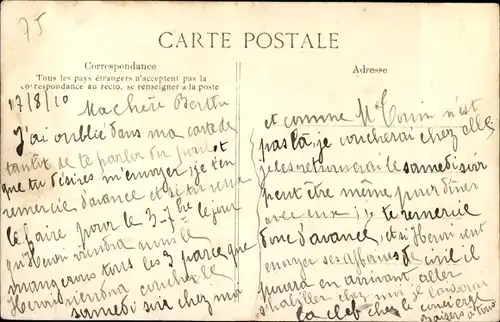 75
CARTE POSTALE
Correspondance
Tous les pays étrangers n'acceptent pas la
correspondance au recto, se renseigner à la poste
Adresse
17/8/10
Ma chère Berthe
J'ai oublié dans ma carte de
tantôt de te parler du
que tu désires m'envoyer, je t'en
remercie d'avance et si tu veux
le faire pour le 3-7bre le jour
qu'Henri viendra nous le
mangerons tous les 3 parce que
Henri viendra coucher le
samedi soir chez moi
et comme Me n'est
pas là, je coucherai chez elle
je les retrouverai le samedi soir
peut être même pour dîner
avec eux je te remercie
donc d'avance, et si Henri veut
envoyer ses affaires de civil il
pourra en arrivant aller
s'habiller chez moi je laisserai
la clef chez le concierge
baisers à tous